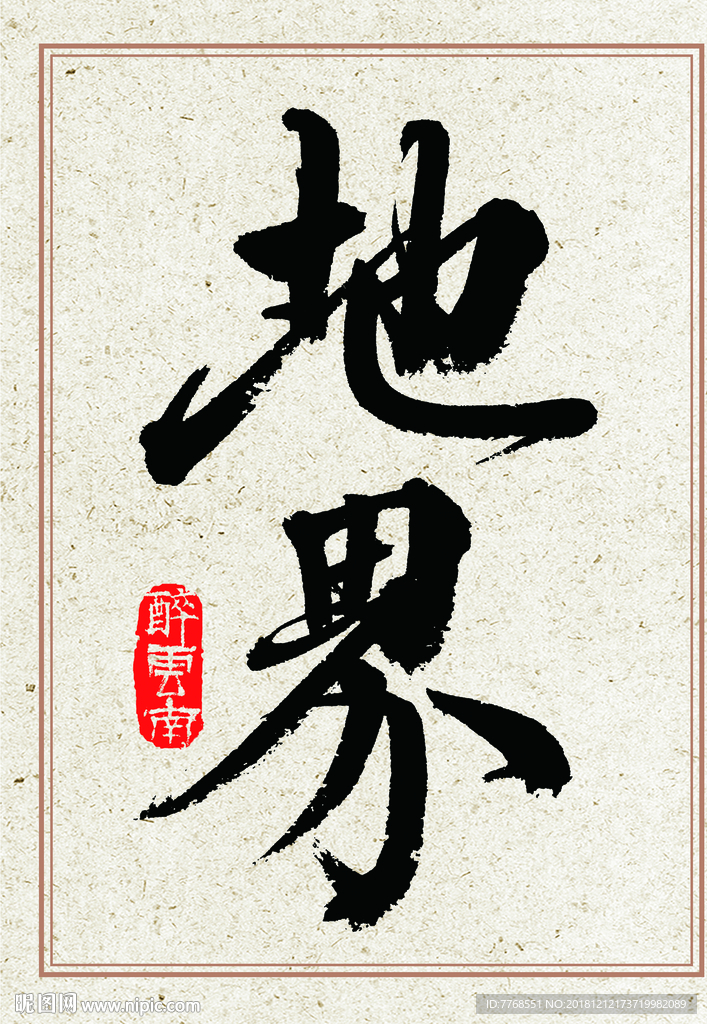 地界
醉雲南
昵图网 www.nipic.com
ID:7768551 NO:20181212173719982089